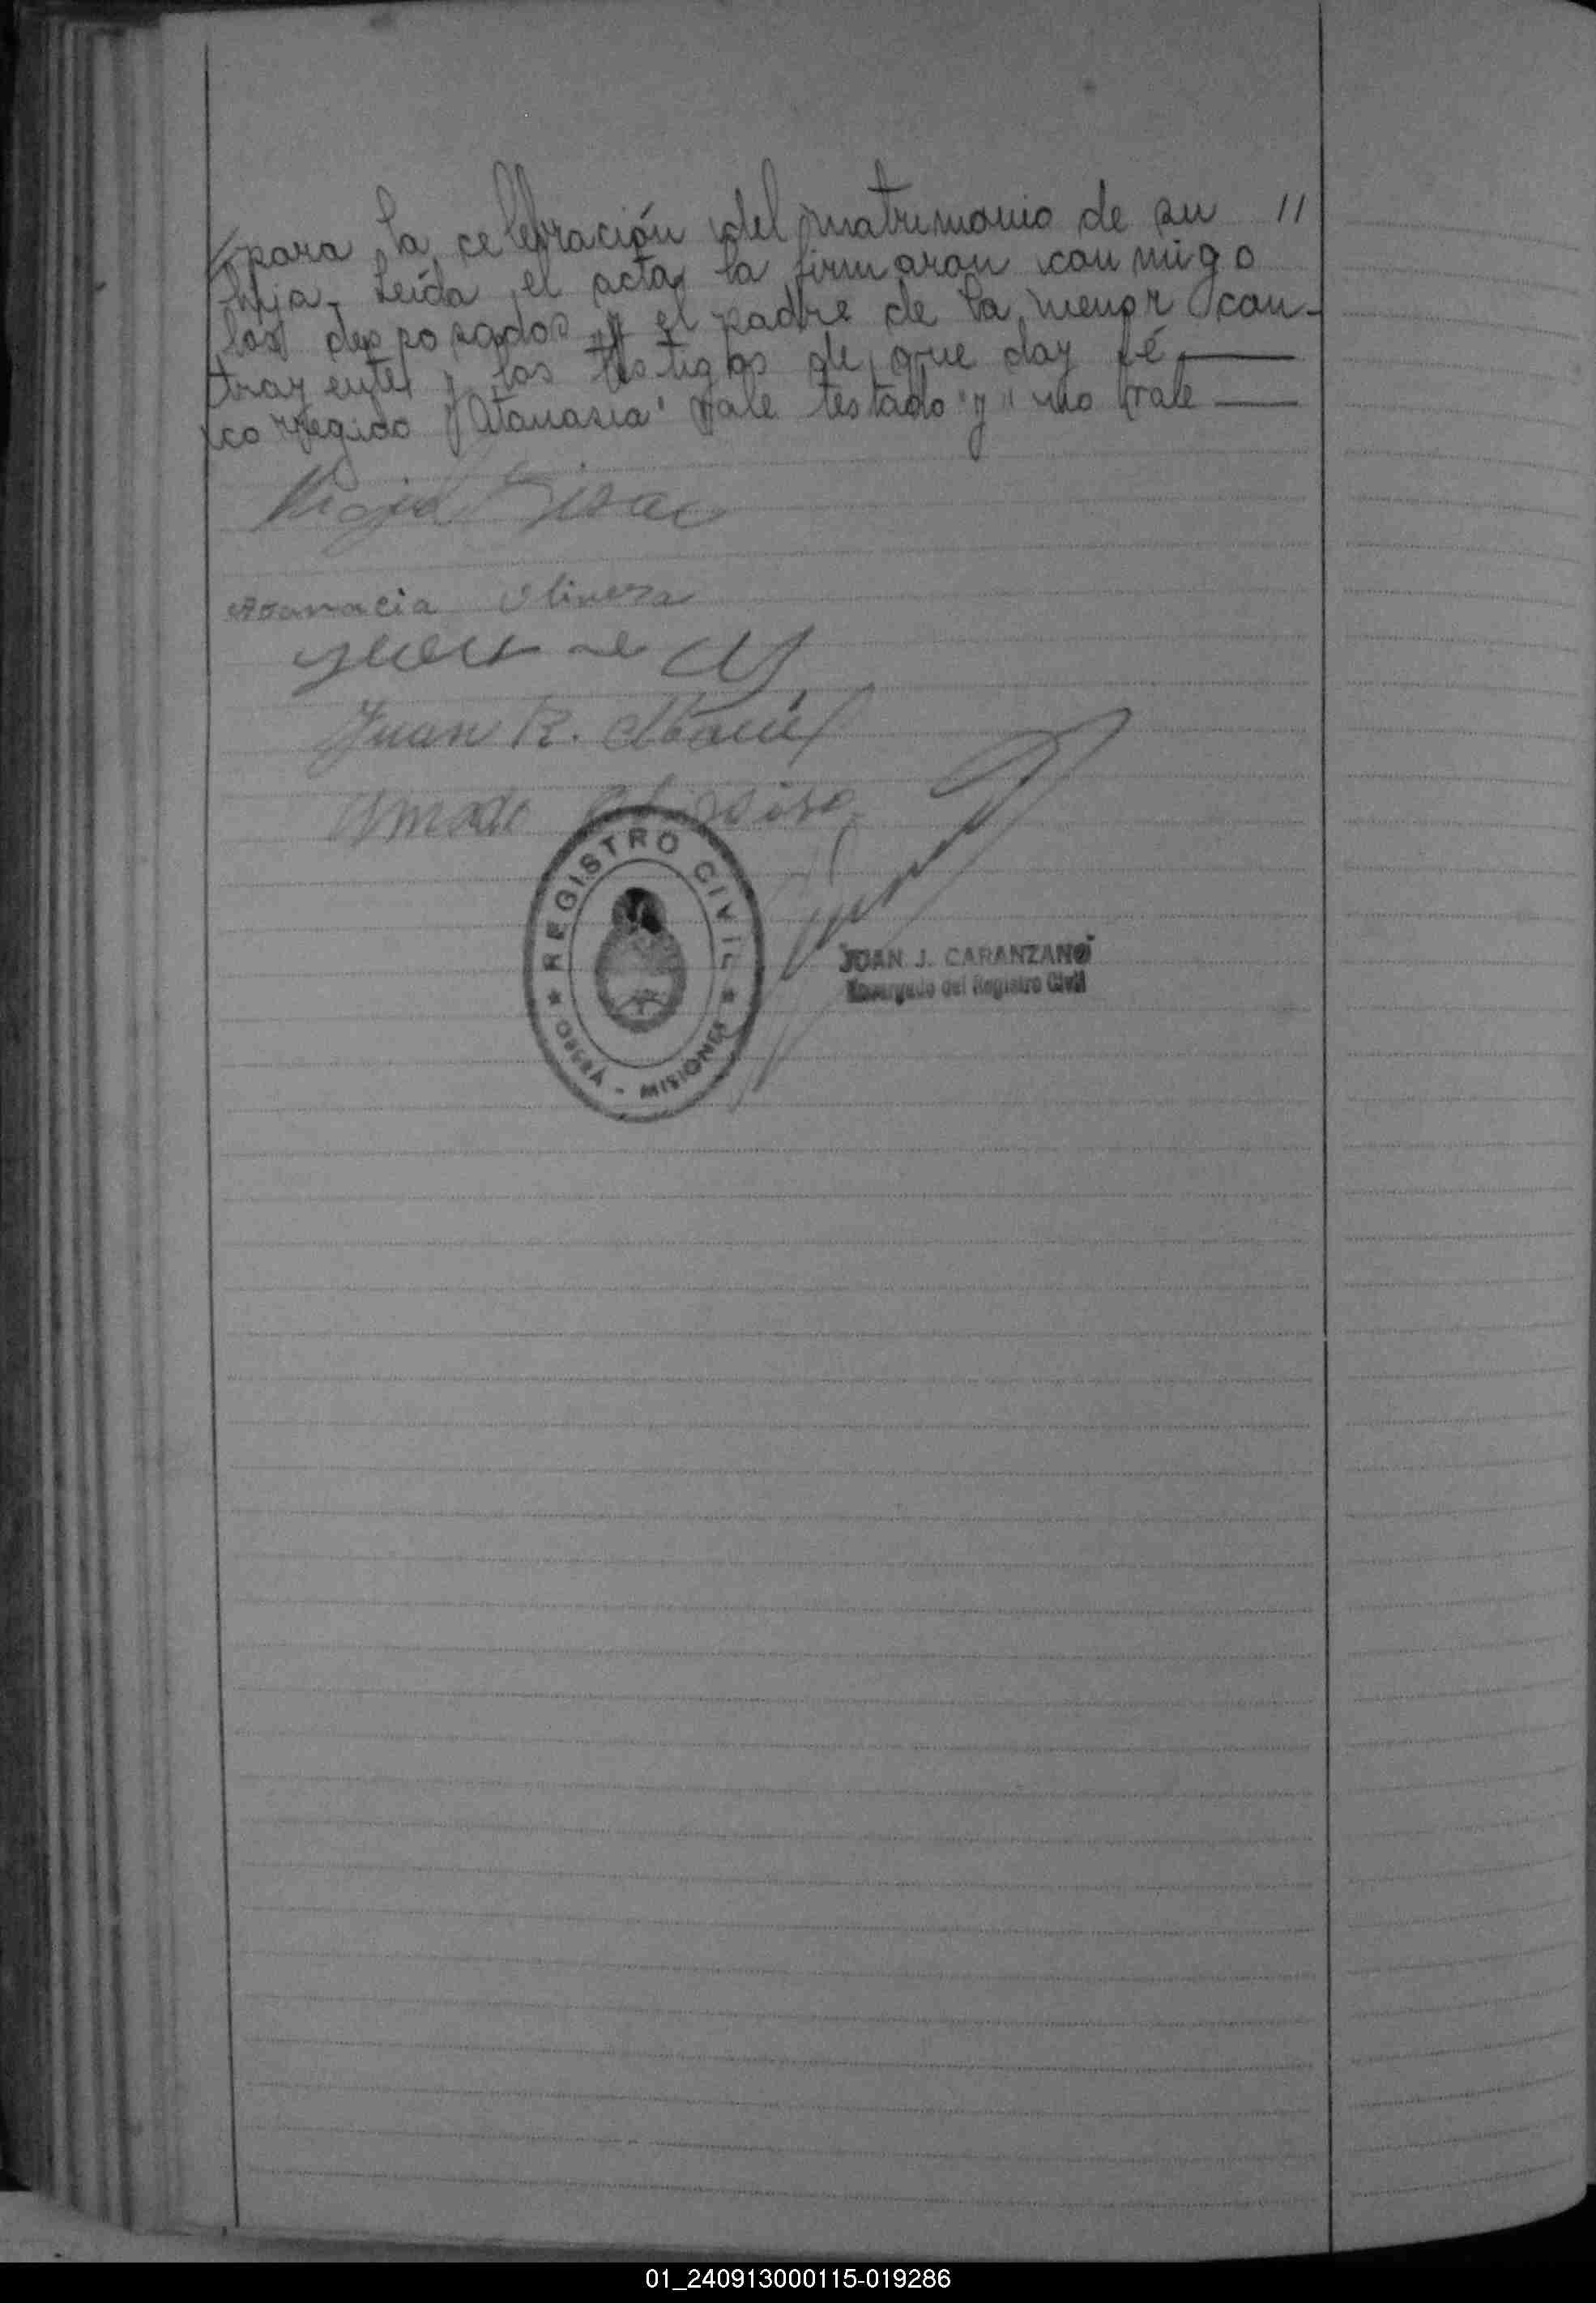 // para la celebración del matrimonio de su //
hija. Leída el acta la firmaron conmigo
los desposados y el padre de la menor con-
trayente y los testigos de que doy fé
corregido "Atanasia" vale testado "y" no vale
Atanacia Olivera
Juan R. Maciel
Amado
REGISTRO CIVIL
OBERÁ - MISIONES
JUAN J. CARANZANO
Encargado del Registro Civil
01_240913000115-019286